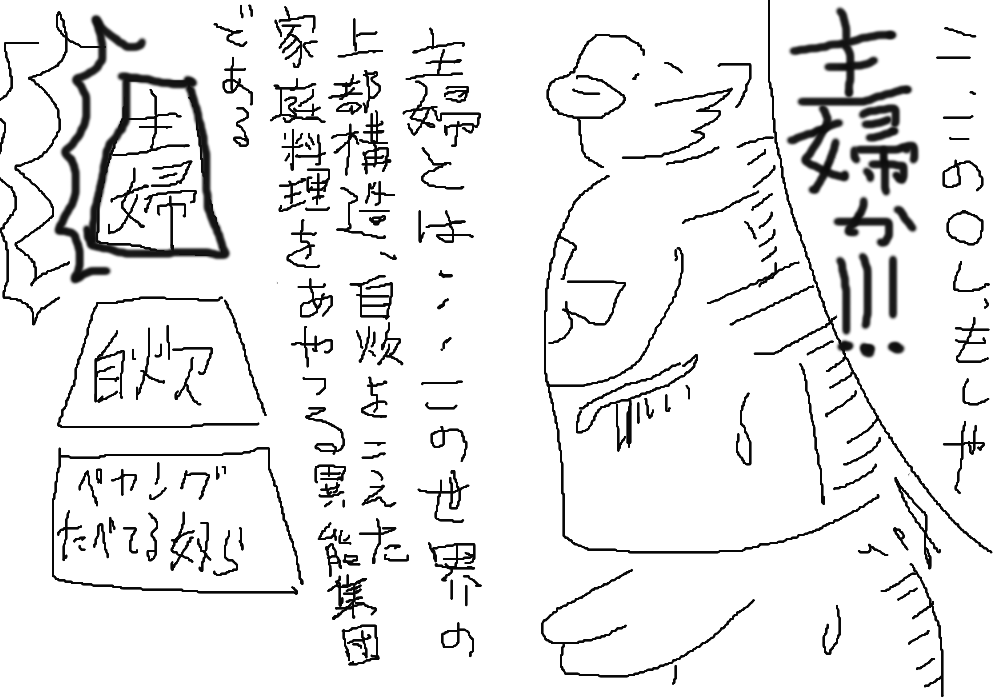 こ、この〇し、もしや
主婦か!!!
主婦とは・・・この世界の
上部構造、自炊をこえた
家庭料理をあやつる異能集団
である
主婦
自炊
ペヤング
たべてる奴ら